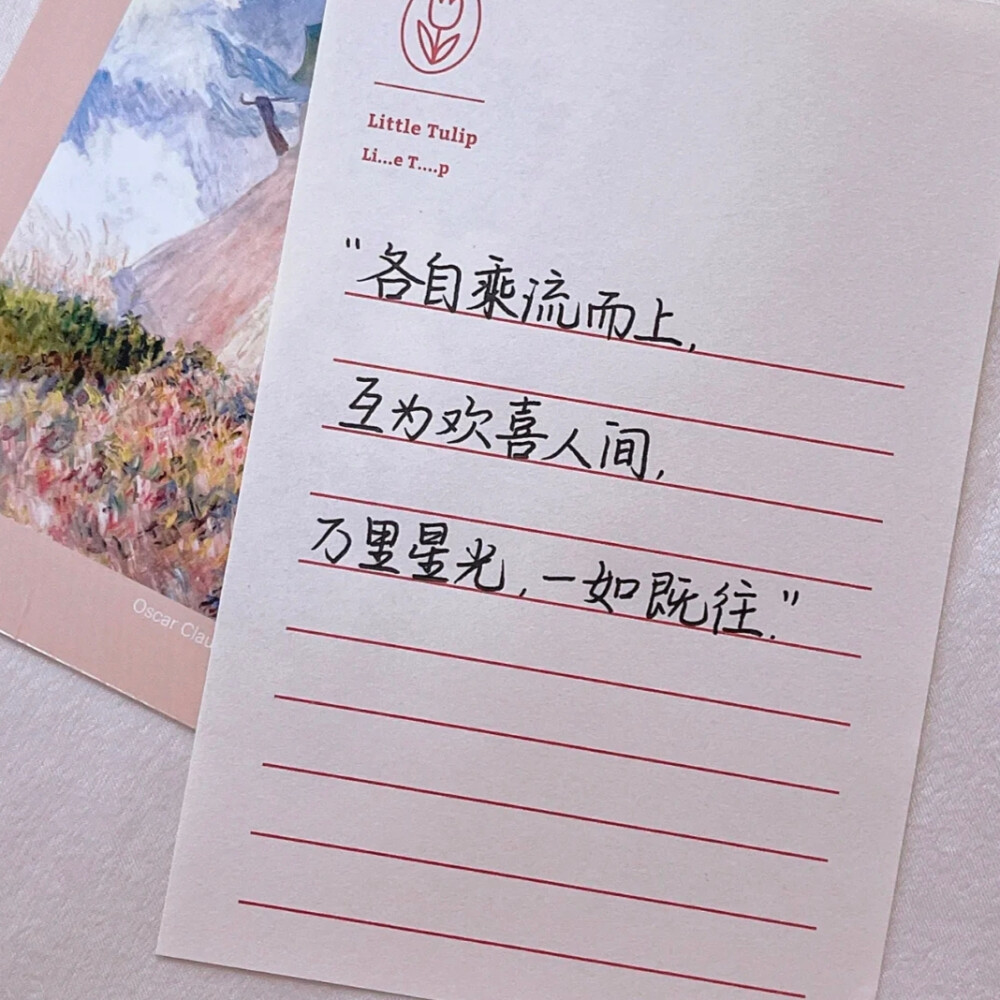 Little Tulip
Li...e T....p
"各自乘流而上,
互为欢喜人间,
万里星光,一如既往."
Oscar Clau